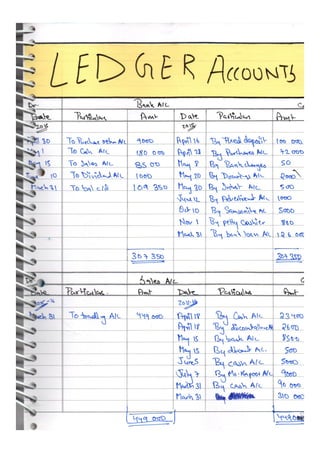 LEDGER ACCOUNTS
Dr Bank A/c
Date Particulars Amt Date Particulars Amt
2015
April 30 To Purchase return A/c 9000 April 14 By Fixed deposit 100 000
1 To Cash A/c 180 000 April 28 By Purchases A/c 42000
15 To Sales A/c 8500 May 8 By Bank charges 50
10 To Dividend A/c 1000 May 20 By A/c 2000
March 31 To bal c/d 109 350 May 30 By A/c 500
June 12 By Advertisement A/c 1000
Oct 10 By A/c 5000
Nov 1 By petty cashier 800
March 31 By bank loan A/c
307 350 307 350
Dr Sales A/c
Date Particulars Amt Date Particulars Amt
March 31 To trading A/c 449 000 April 18 By Cash A/c 23400
April 18 By discount A/c 2600
May 15 By bank A/c 8500
May 15 By discount A/c 500
June 5 By cash A/c 5000
July 7 By Mr. Kapoor A/c 9000
March 31 By cash A/c 90 000
March 31 310 000
449 000 449000